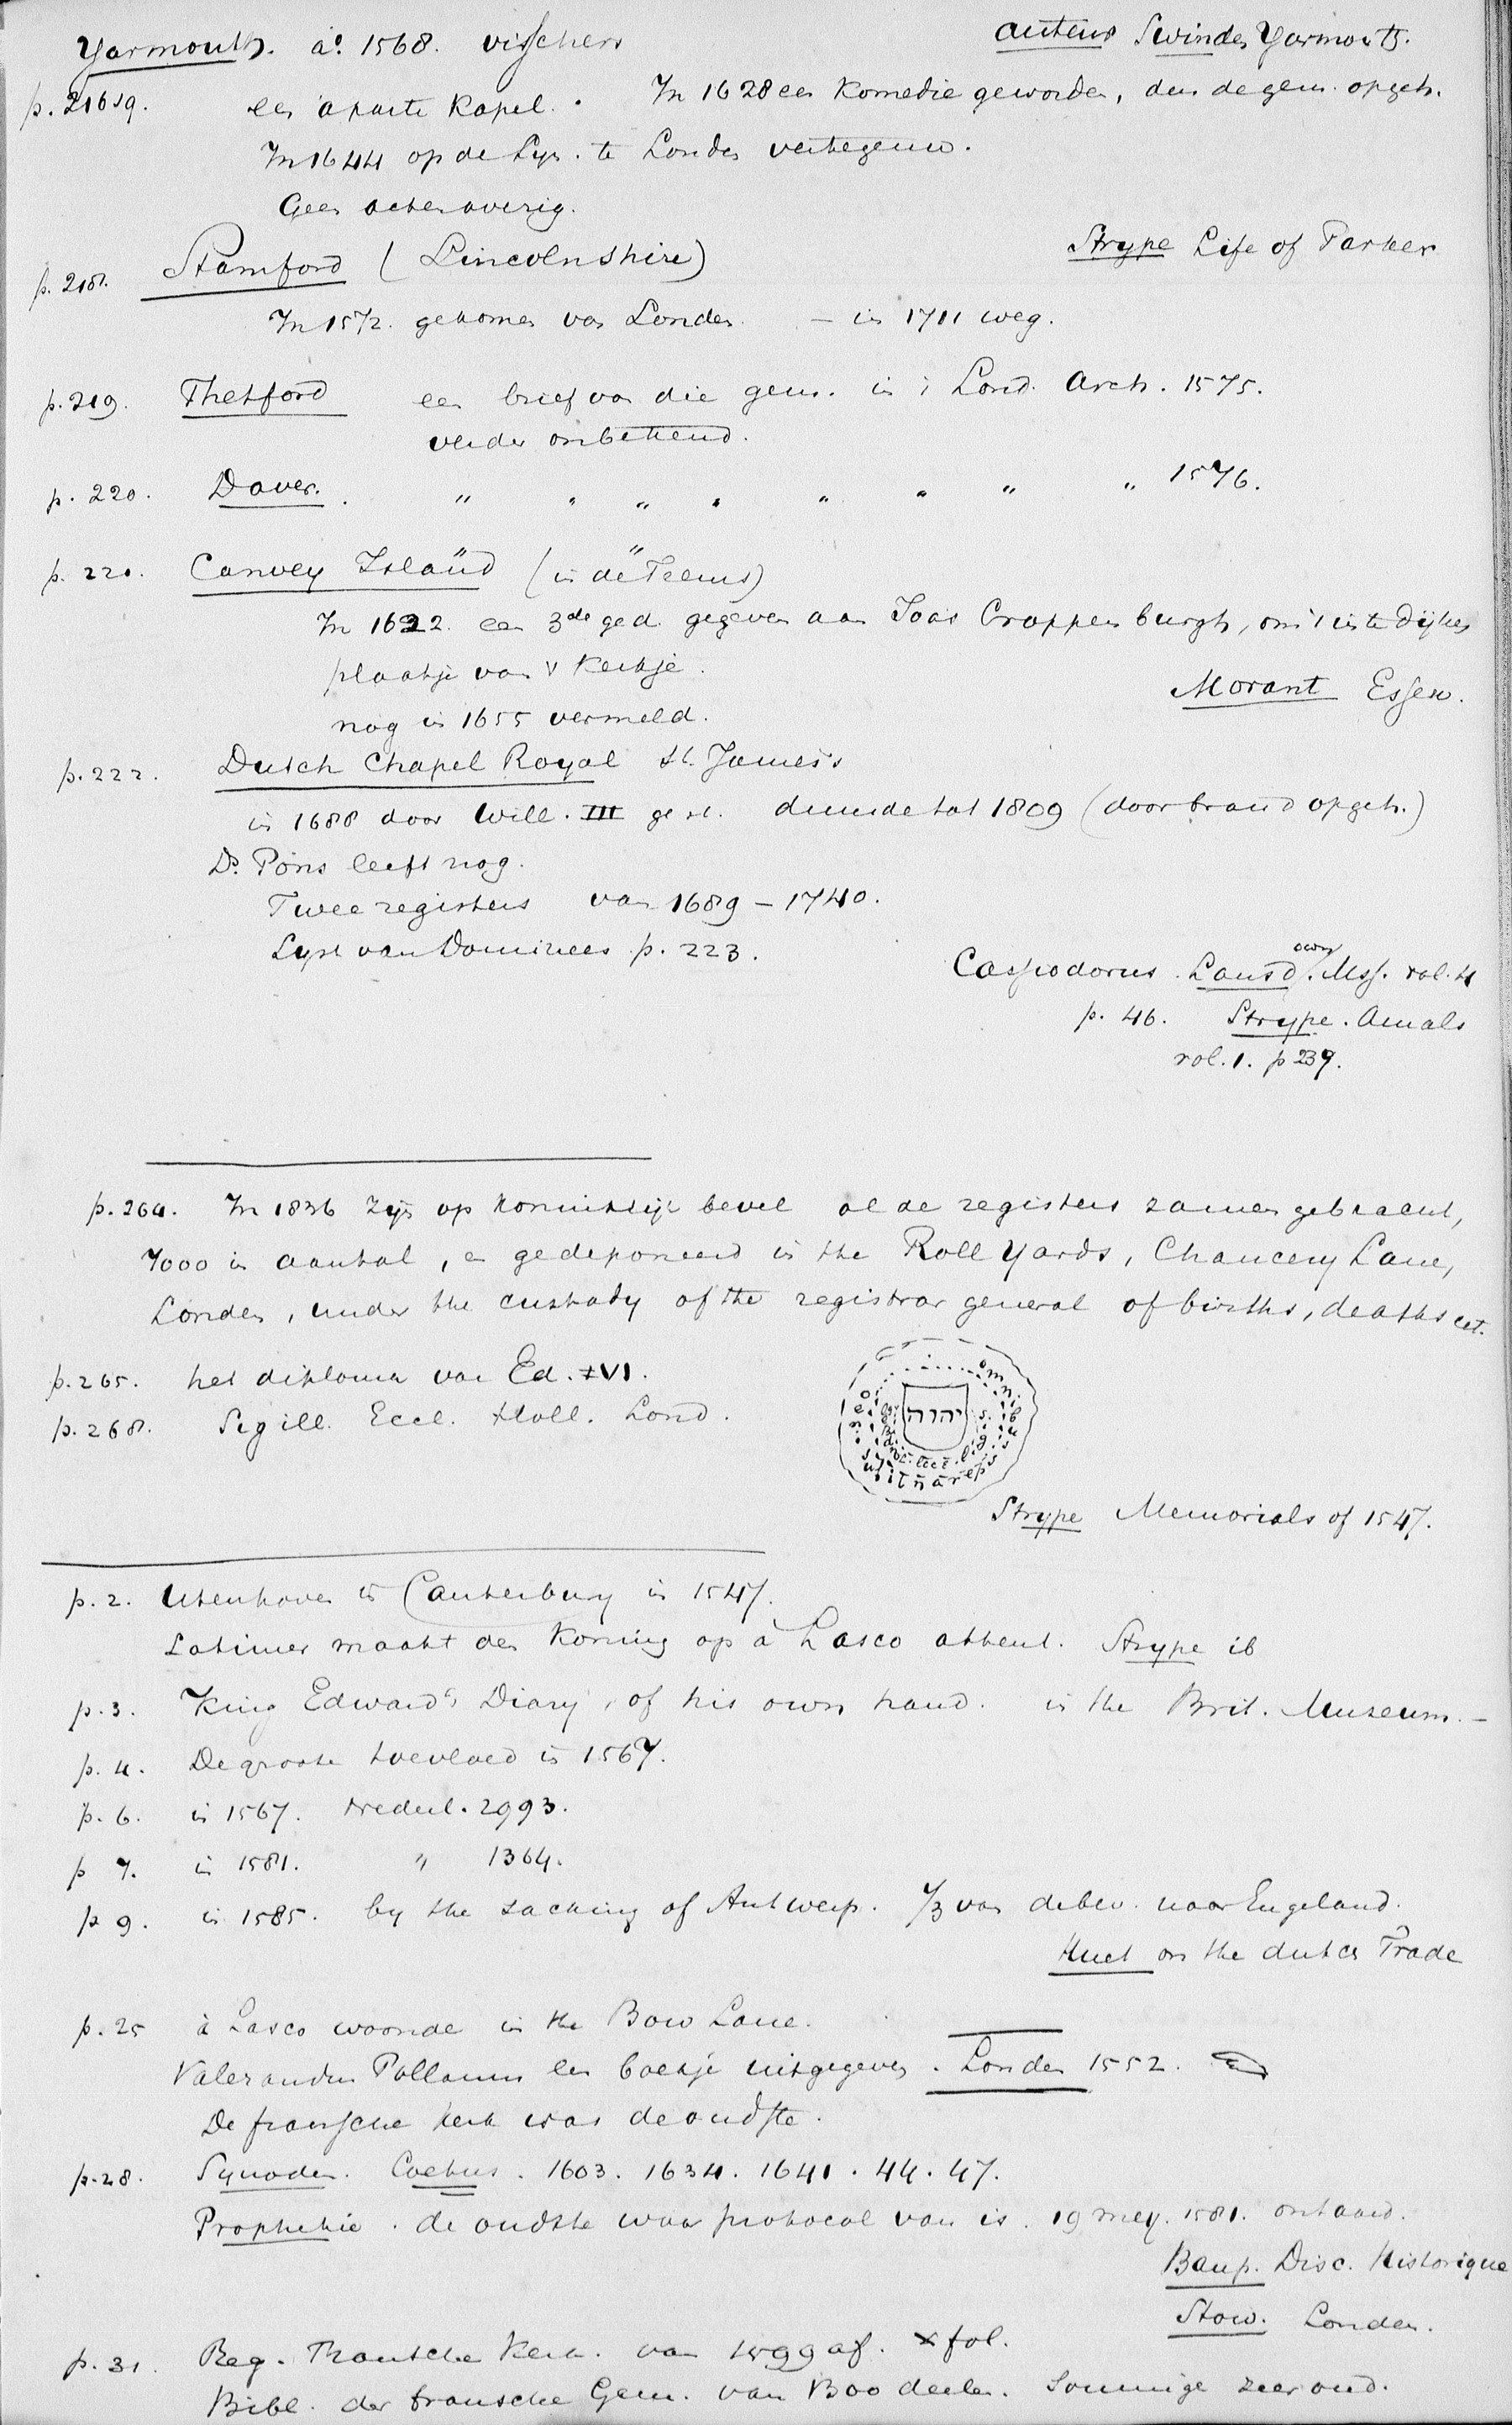 Yarmouth. aº. 1568. visschers auteurs Swinden Yarmouth.
p. 216 sq. een aparte kapel. In 1628 een Komedie geworden, den de gem. opgeh.
In 1644 op de Syn. te Londen vertegenw.
Geen acten overig.
Strype Life of Parker
p. 218. Stamford (Lincolnshire)
In 1572. gekomen van Londen. – in 1711 weg.
p. 219. Thetford een brief van die gem. in 't Lond. Arch. 1575.
verder onbekend.
p. 220. Dover. " " " " " " " " 1576.
" "
p. 221. Canvey Island (in de Teems)
In 1622. een 3de ged. gegeven aan Joas Croppenburgh, om 't in te dijken
plaatje van 't Kerkje.
Morant Essex.
nog in 1655 vermeld.
p. 222. Dutch Chapel Royal St. James's
in 1688 door Will. III gest. duurde tot 1809 (door brand opgeh.)
Ds. Pons leeft nog.
Twee registers van 1689 – 1740.
Lyst van Dominees p. 223.
Cassiodorus. Lansd.own Mss. vol. 4
p. 46. Strype. Annals
vol. 1. p 239.
p. 264. In 1836 zijn op koninklijk bevel al de registers zamen gebracht,
7000 in aantal, en gedeponeerd in the Roll Yards, Chancery Lane,
Londen, under the custody of the registrar general of births, deaths cet.
p. 265. het diploma van Ed. VI.
p. 268. Sigill. Eccl. Holl. Lond.
יהוה
Strype Memorials of 1547.
p. 2. Utenhoven in Canterbury in 1547.
Latimer maakt den Koning op à Lasco attent. Strype ib
p. 3. King Edward's Diary, of his own hand. in the Brit. Museum. –
p. 4. De groote toevloed in 1567.
p. 6. in 1567. Nederl. 2993.
p 7. in 1581. " 1364.
p 9. in 1585. by the sacking of Antwerp. 1/3 van de bev. naar Engeland.
Huet on the dutch Trade
p. 25 à Lasco woonde in the Bow Lane.
Valerandus Pollanus een boekje uitgegeven. Londen 1552.
De fransche kerk was de oudste.
p. 28. Synoden. Coetus. 1603. 1634. 1641. 44. 47.
Prophetie. de oudste waar protocol van is. 19 mey. 1581. ontaard.
Baup. Disc. Historique
Stow. Londen.
p. 31. Reg. Fransche Kerk. van 1599 af. x fol.
Bibl. der fransche Gem. van 800 deelen. Sommige zeer oud.